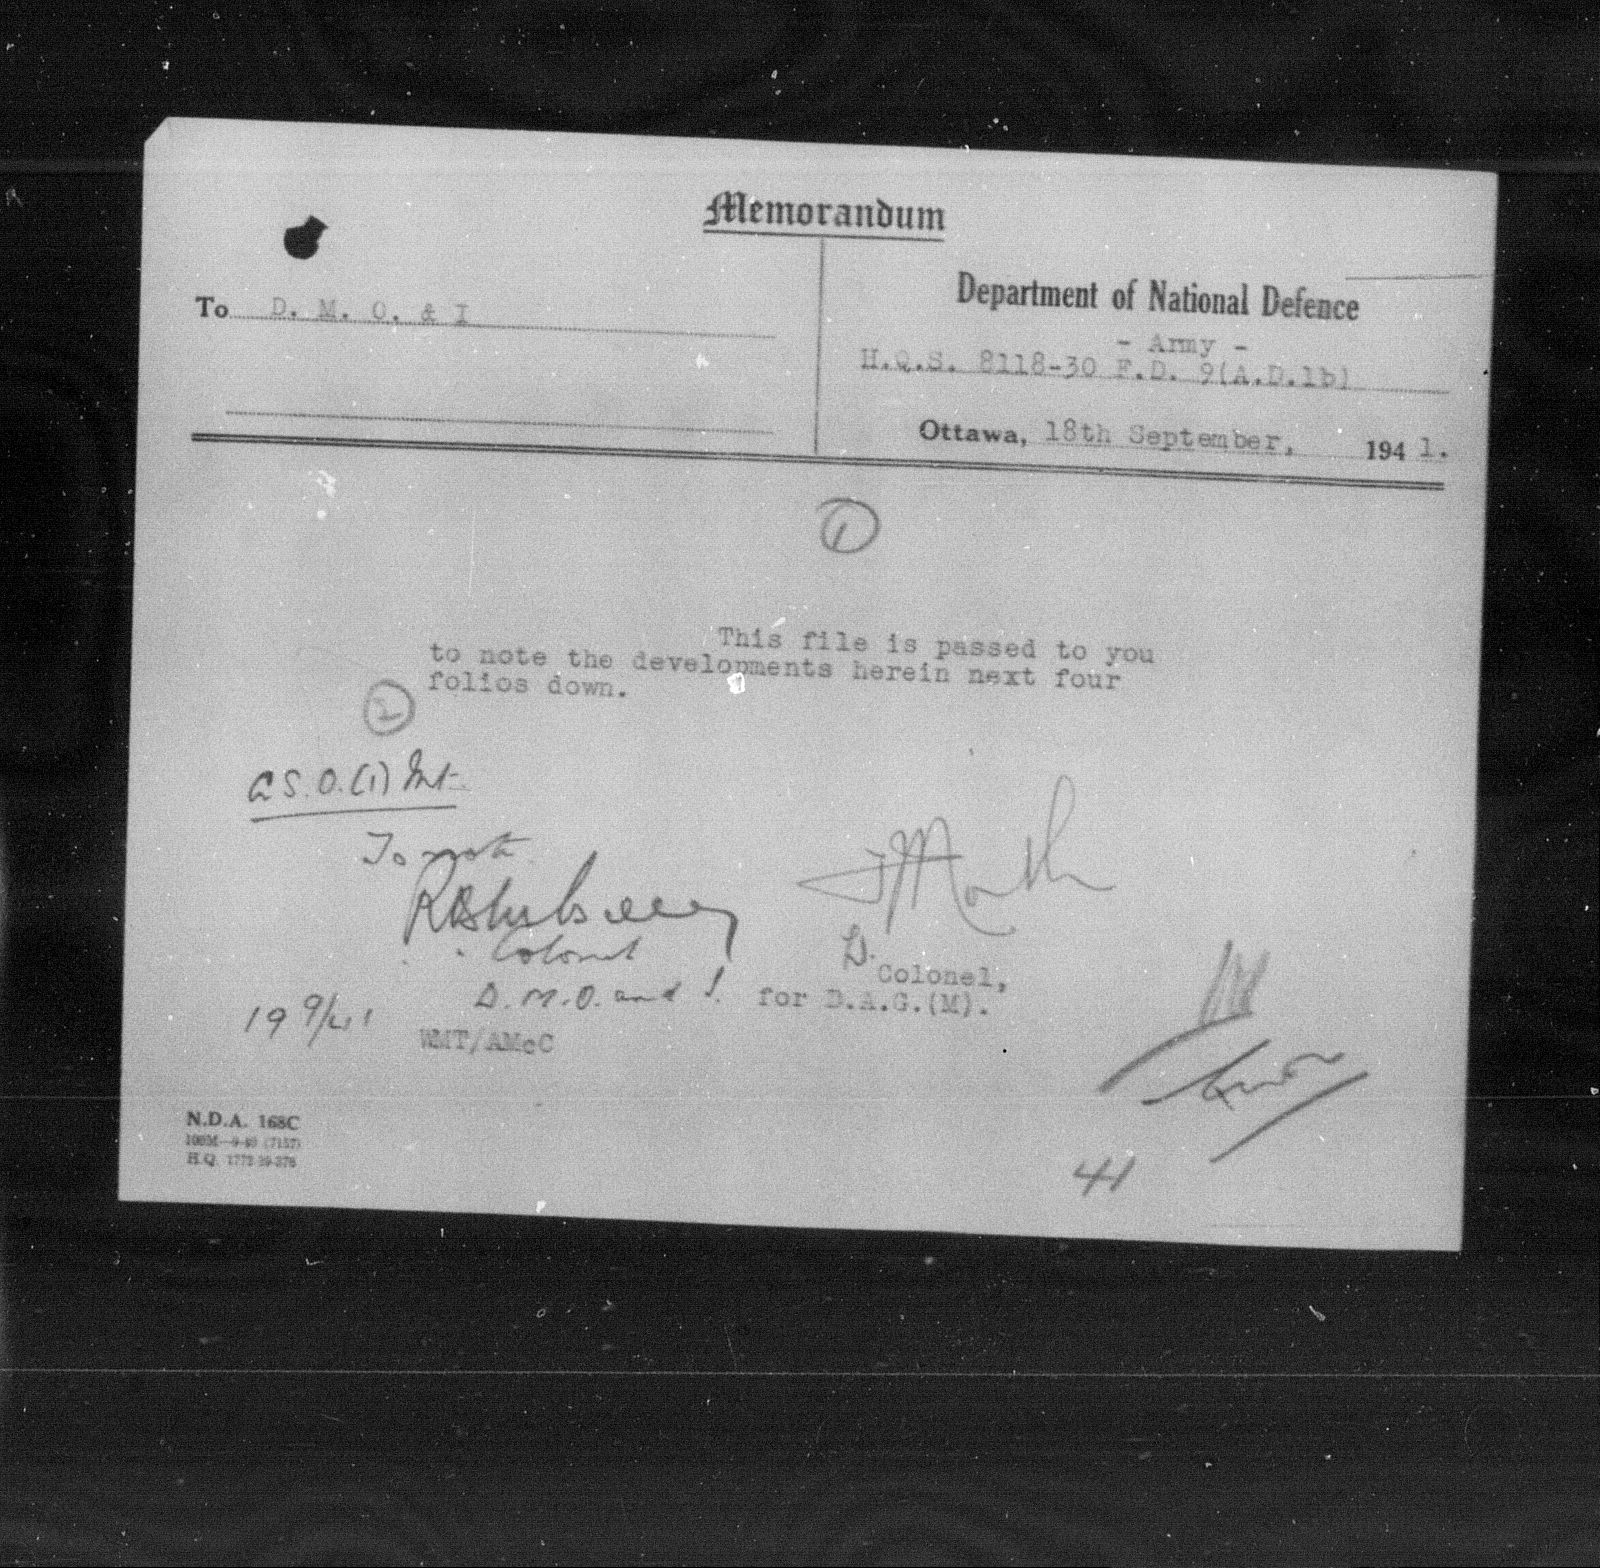 Memorandum
To D. M. O. & I
Department of National Defence
- Army -
H.Q.S. 8118-30 F.D. 9(A.D.1b)
Ottawa, 18th September, 1941.
1
This file is passed to you
to note the developments herein next four
folios down.
2
G.S.O.(1) Int
To note
Colonel
D.M.O. and I.
19 9/41
D.
Colonel,
for D.A.G.(M).
WMT/AMcC
N.D.A. 168C
100M—9-40 (7157)
H.Q. 1772-39-376
41